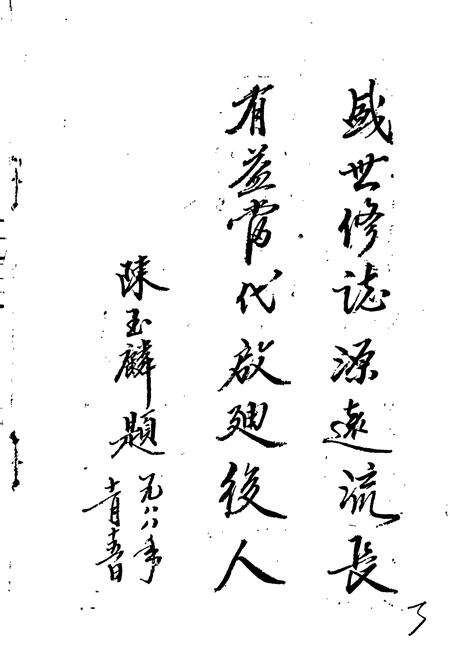 盛世修誌源遠流長
有益當代啟廸後人
陳玉麟題
一九八八年
十一月十五日